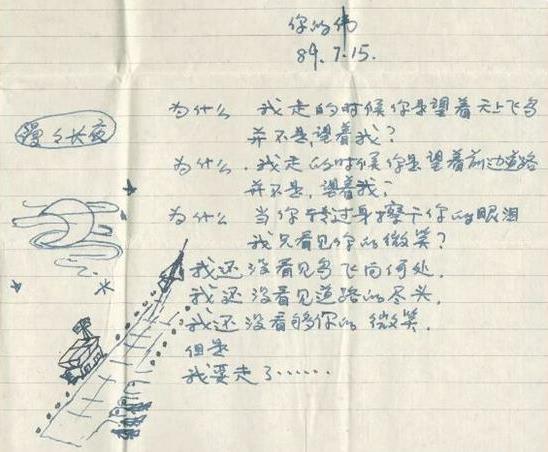 你的伟
89.7.15.
漫々长夜
为什么 我走的时候你是望着天上飞鸟
并不是,望着我?
为什么,我走的时候你是望着前边道路
并不是,望着我?
为什么 当你转过身擦干你的眼泪
我只看见你的微笑?
我还没看见鸟飞向何处.
我还没看见道路的尽头.
我还没看够你的微笑.
但是
我要走了……